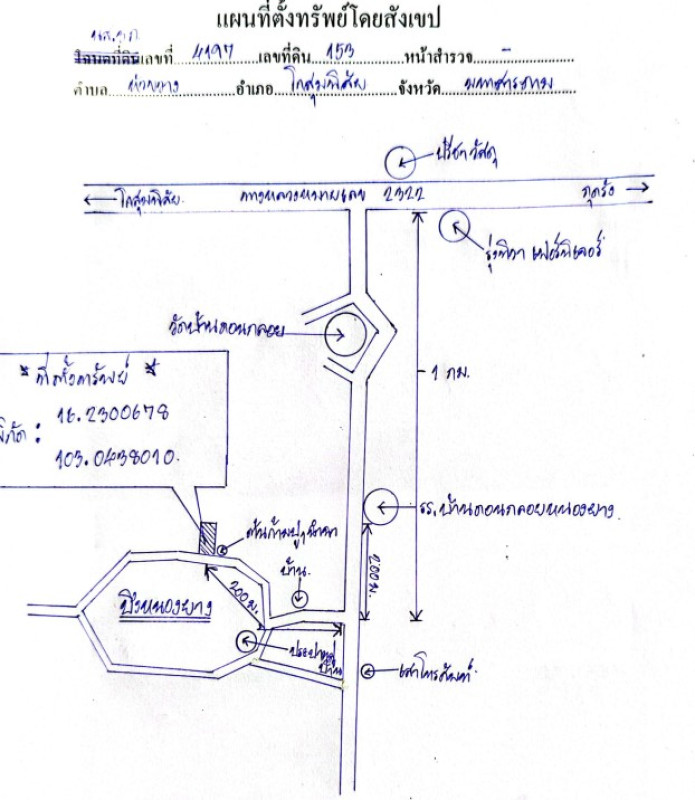 แผนที่ตั้งทรัพย์โดยสังเขป
น.ส.3 ก.
โฉนดที่ดินเลขที่ 4197 เลขที่ดิน 153 หน้าสำรวจ -
ตำบล อำเภอ โกสุมพิสัย จังหวัด มหาสารคาม
ปรีชา วัสดุ
← โกสุมพิสัย ทางหลวงหมายเลข 2322 กุดรัง →
รุ่งทิวา เฟอร์นิเจอร์
วัดบ้านดอนกลอย
1 กม.
* ที่ตั้งทรัพย์ *
พิกัด : 16.2300678
103.0438010.
รร.บ้านดอนกลอยหนองยาง
ต้นก้ามปู
บ้าน.
200 ม.
200 ม.
บึงหนองยาง
ประปาหมู่บ้าน
เสาโทรศัพท์